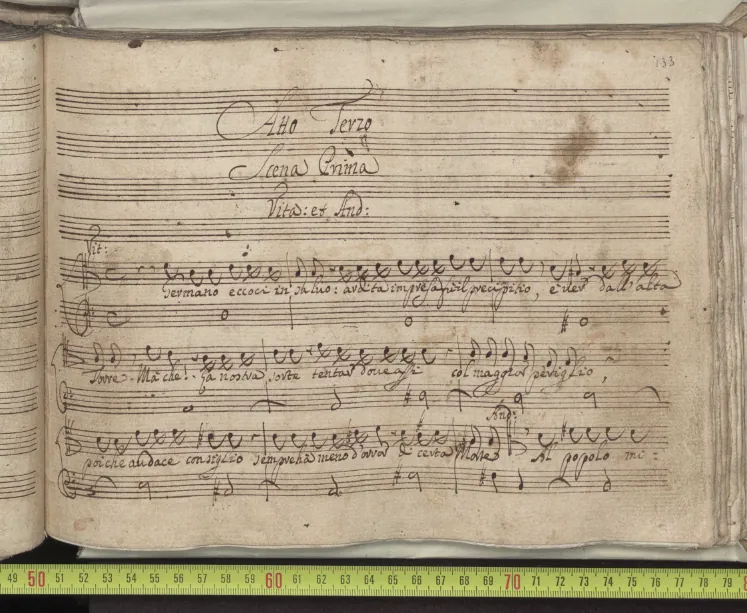 133
Atto Terzo
Scena Prima
Vita: et And:
Vit:
Germano eccoci in salvo: ardita impresa fu il precipitio, e ver dall'alta
Torre. Ma che! la nostra sorte tentar doveassi col maggior periglio,
And:
poiche audace consiglio sempre ha meno d'orror di certa Morte Al popolo mi:
49 50 51 52 53 54 55 56 57 58 59 60 61 62 63 64 65 66 67 68 69 70 71 72 73 74 75 76 77 78 79